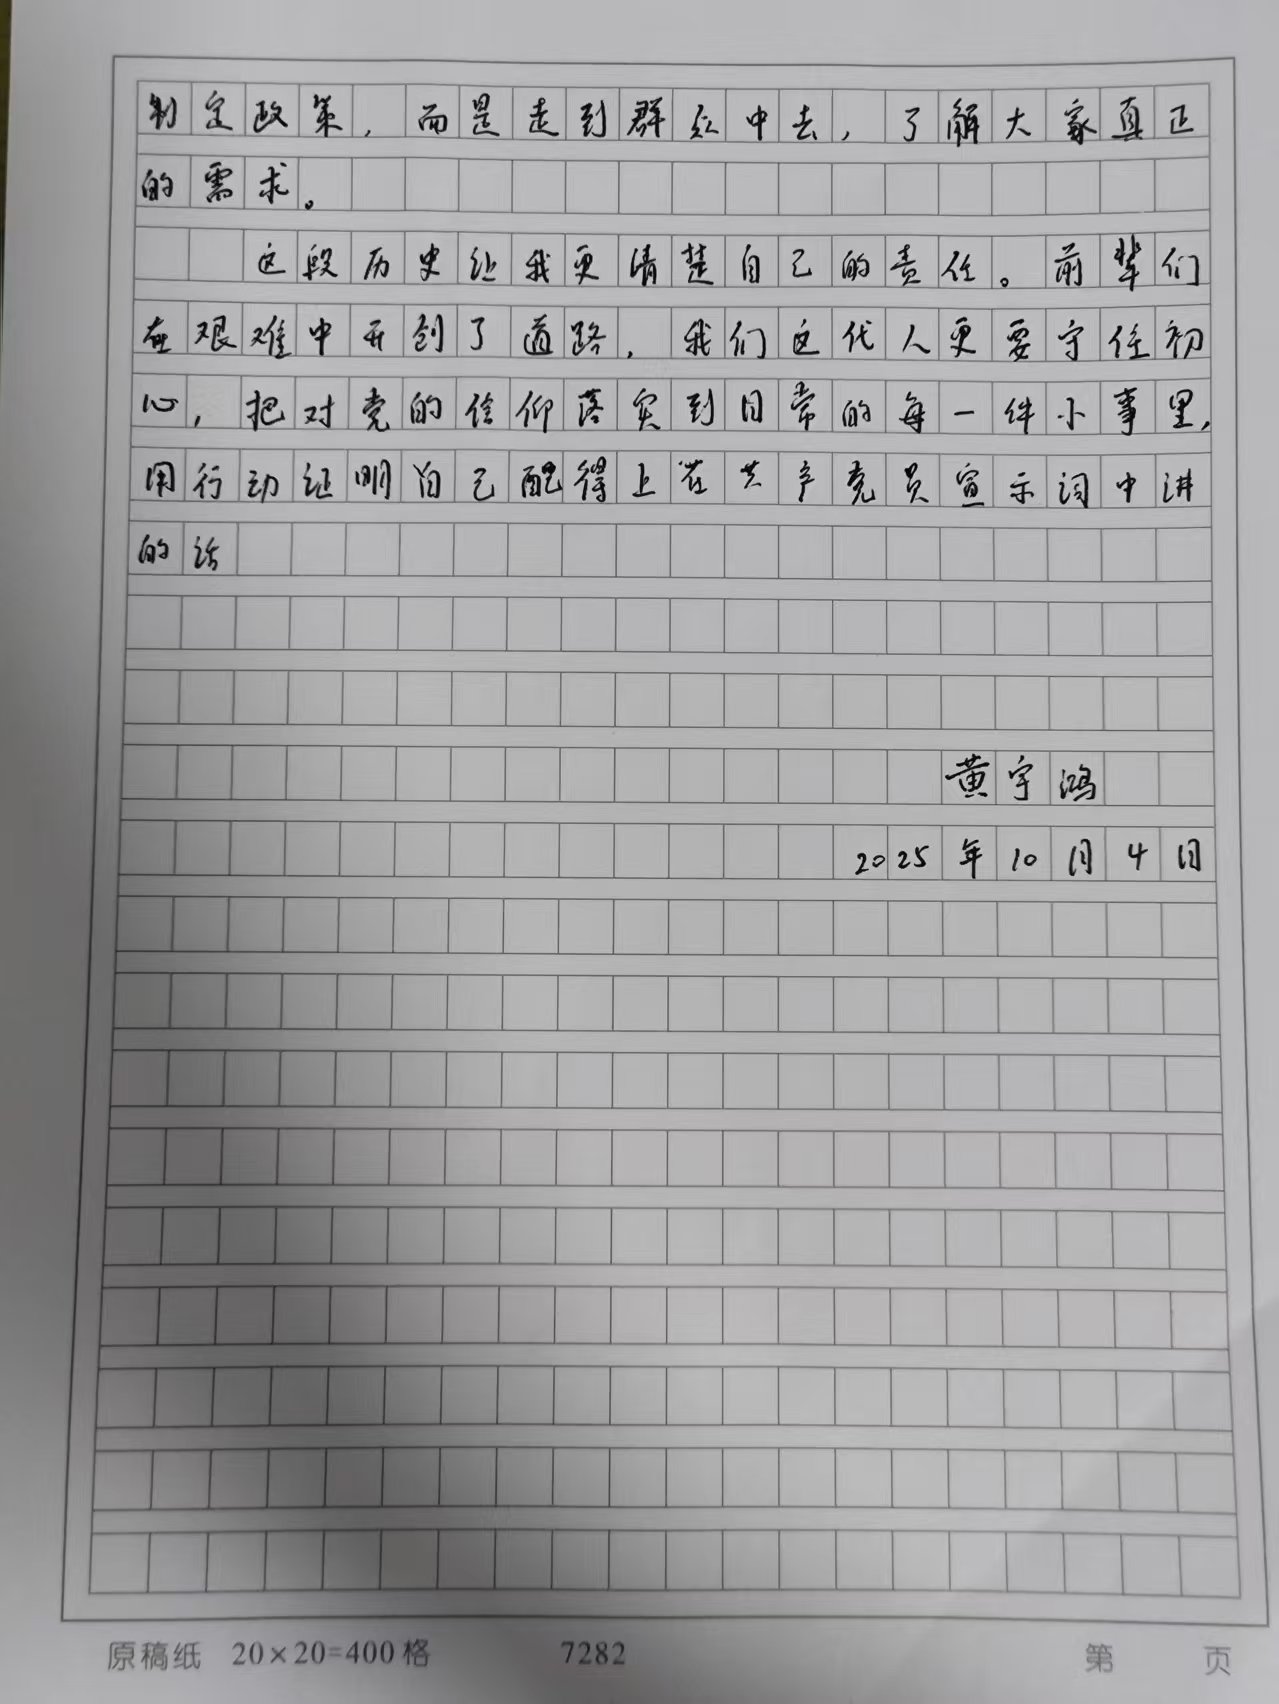 制定政策，而是走到群众中去，了解大家真正
的需求。
这段历史让我更清楚自己的责任。前辈们
在艰难中开创了道路，我们这代人更要守住初
心，把对党的信仰落实到日常的每一件小事里，
用行动证明自己配得上在共产党员宣示词中讲
的话
黄宇鸿
2025年10月4日
原稿纸 20×20=400格 7282 第 页